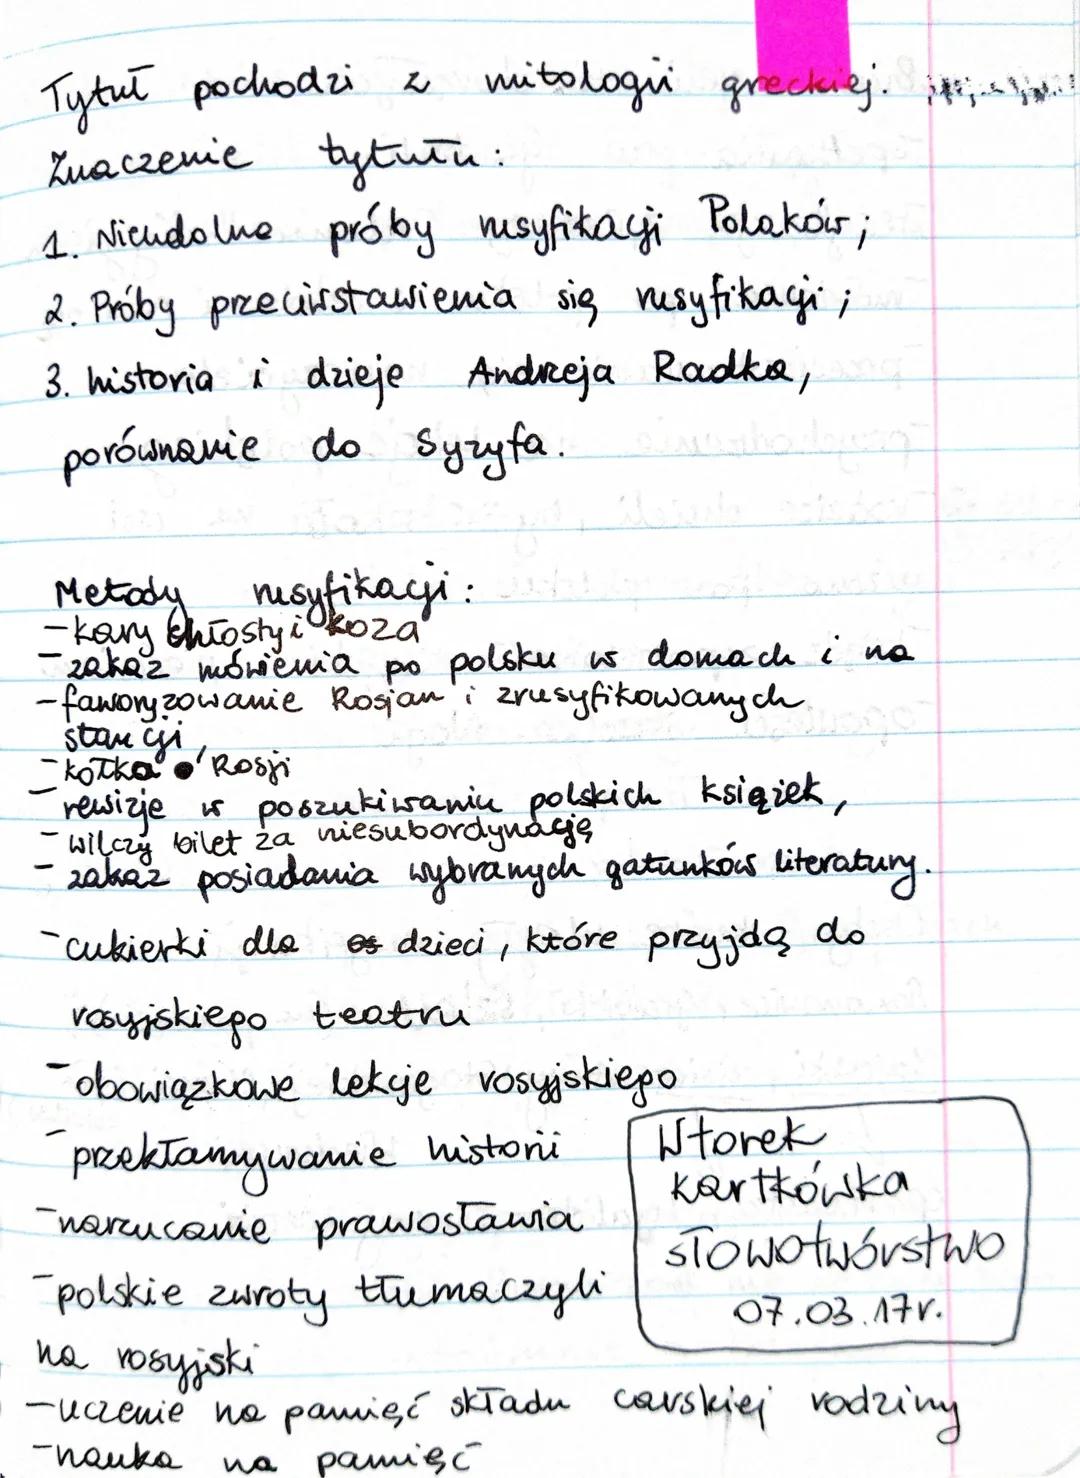 Tytuł pochodzi z mitologii greckiej.
Znaczenie tytułu:
1. Nieudolne próby rusyfikacji Polaków;
2. Próby przeciwstawienia się rusyfikacji;
3. historia i dzieje Andrzeja Radka,
porównanie do Syzyfa.
Metody rusyfikacji:
- kary chłosty i koza
- zakaz mówienia po polsku w domach i na
- faworyzowanie Rosjan i zrusyfikowanych
stancji,
- kółka o Rosji
- rewizje w poszukiwaniu polskich książek,
- wilczy bilet za niesubordynację
- zakaz posiadania wybranych gatunków literatury.
- cukierki dla dzieci, które przyjdą do
rosyjskiego teatru
- obowiązkowe lekcje rosyjskiego
- przekłamywanie historii
- narzucanie prawosławia
- polskie zwroty tłumaczyli
na rosyjski
- uczenie na pamięć składu carskiej rodziny
- nauka na pamięć
Wtorek
kartkówka
słowotwórstwo
07.03.17r.